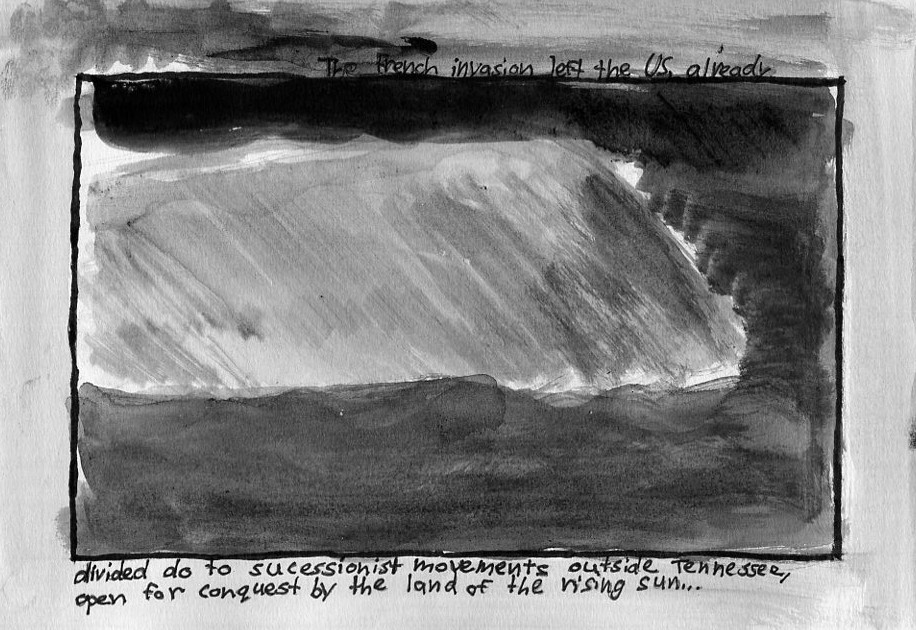 The French invasion left the US, already
divided do to sucessionist movements outside Tennessee,
open for conquest by the land of the rising sun...